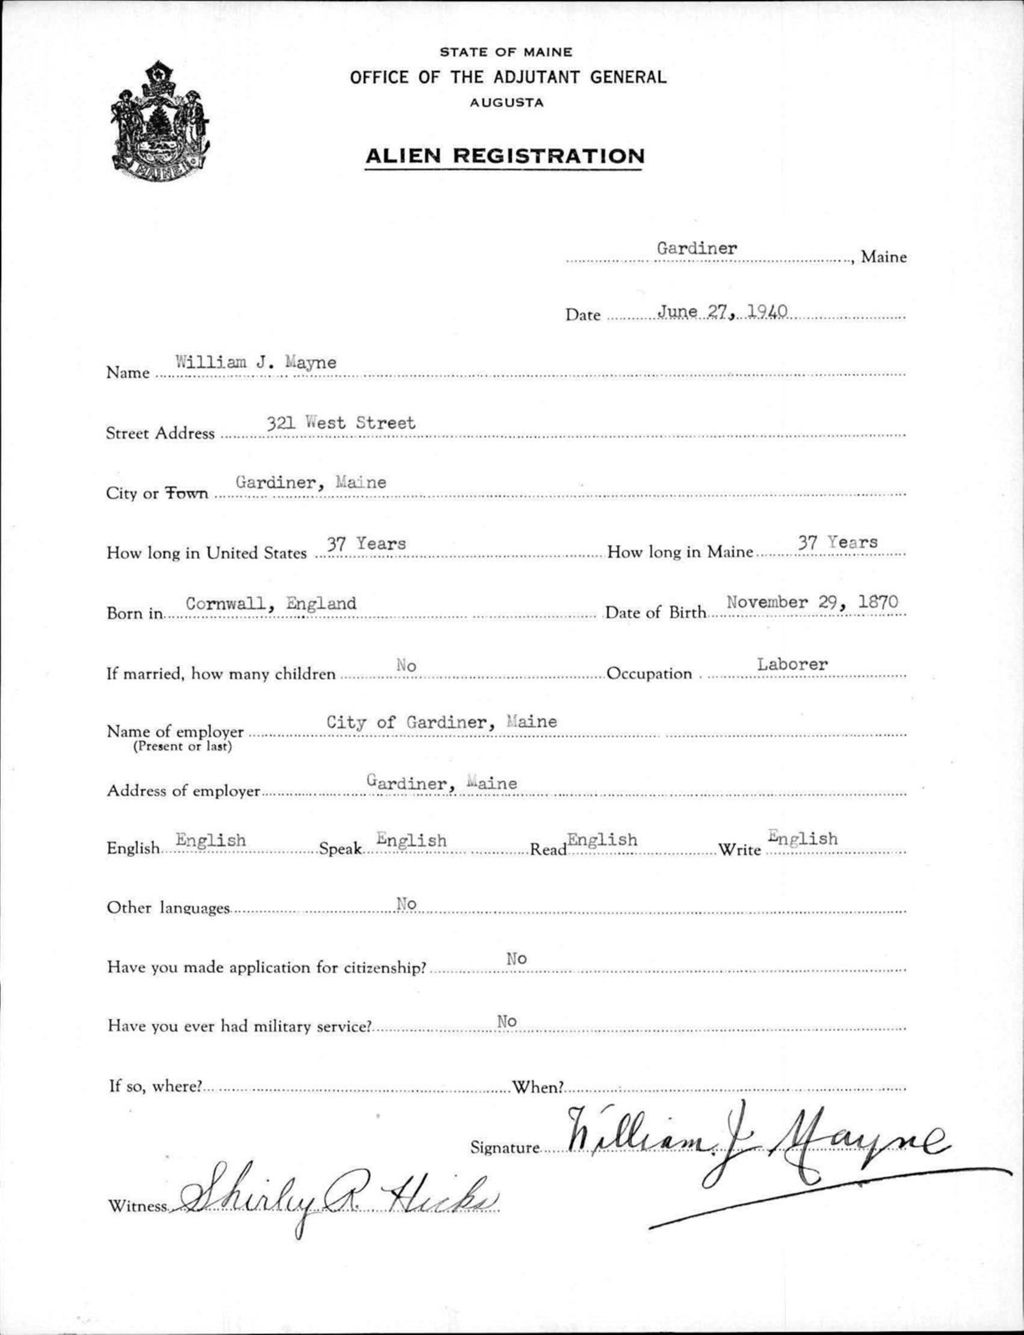 STATE OF MAINE
OFFICE OF THE ADJUTANT GENERAL
AUGUSTA
ALIEN REGISTRATION
MAINE
Gardiner, Maine
Date June 27, 1940
Name William J. Mayne
Street Address 321 West Street
City or Town Gardiner, Maine
How long in United States 37 Years How long in Maine 37 Years
Born in Cornwall, England Date of Birth November 29, 1870
If married, how many children No Occupation Laborer
Name of employer City of Gardiner, Maine
(Present or last)
Address of employer Gardiner, Maine
English English Speak English Read English Write English
Other languages No
Have you made application for citizenship? No
Have you ever had military service? No
If so, where? When?
Signature William J. Mayne
Witness Shirley R. Hicks